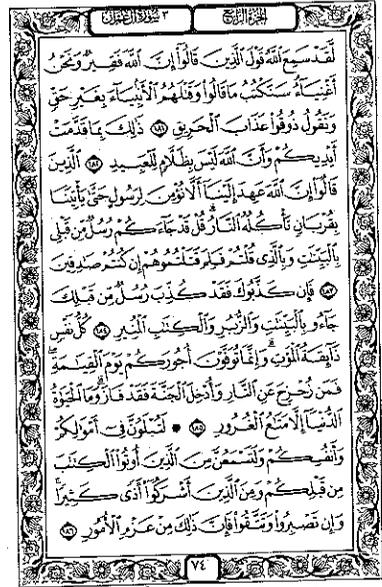 الجزء الرابع
٣ سورة آل عمران
لَّقَدْ سَمِعَ اللَّهُ قَوْلَ الَّذِينَ قَالُوا إِنَّ اللَّهَ فَقِيرٌ وَنَحْنُ
أَغْنِيَاءُ سَنَكْتُبُ مَا قَالُوا وَقَتْلَهُمُ الْأَنبِيَاءَ بِغَيْرِ حَقٍّ
وَنَقُولُ ذُوقُوا عَذَابَ الْحَرِيقِ ١٨١ ذَٰلِكَ بِمَا قَدَّمَتْ
أَيْدِيكُمْ وَأَنَّ اللَّهَ لَيْسَ بِظَلَّامٍ لِّلْعَبِيدِ ١٨٢ الَّذِينَ
قَالُوا إِنَّ اللَّهَ عَهِدَ إِلَيْنَا أَلَّا نُؤْمِنَ لِرَسُولٍ حَتَّىٰ يَأْتِيَنَا
بِقُرْبَانٍ تَأْكُلُهُ النَّارُ قُلْ قَدْ جَاءَكُمْ رُسُلٌ مِّن قَبْلِي
بِالْبَيِّنَاتِ وَبِالَّذِي قُلْتُمْ فَلِمَ قَتَلْتُمُوهُمْ إِن كُنتُمْ صَادِقِينَ
١٨٣ فَإِن كَذَّبُوكَ فَقَدْ كُذِّبَ رُسُلٌ مِّن قَبْلِكَ
جَاءُو بِالْبَيِّنَاتِ وَالزُّبُرِ وَالْكِتَابِ الْمُنِيرِ ١٨٤ كُلُّ نَفْسٍ
ذَائِقَةُ الْمَوْتِ وَإِنَّمَا تُوَفَّوْنَ أُجُورَكُمْ يَوْمَ الْقِيَامَةِ
فَمَن زُحْزِحَ عَنِ النَّارِ وَأُدْخِلَ الْجَنَّةَ فَقَدْ فَازَ وَمَا الْحَيَوٰةُ
الدُّنْيَا إِلَّا مَتَاعُ الْغُرُورِ ١٨٥ لَتُبْلَوُنَّ فِي أَمْوَالِكُمْ
وَأَنفُسِكُمْ وَلَتَسْمَعُنَّ مِنَ الَّذِينَ أُوتُوا الْكِتَابَ
مِن قَبْلِكُمْ وَمِنَ الَّذِينَ أَشْرَكُوا أَذًى كَثِيرًا
وَإِن تَصْبِرُوا وَتَتَّقُوا فَإِنَّ ذَٰلِكَ مِنْ عَزْمِ الْأُمُورِ ١٨٦
٧٤